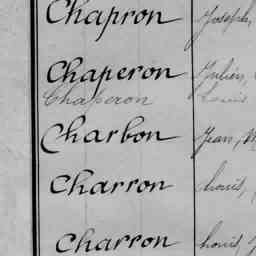 Chapron Joseph,
Chaperon Julien,
Chaperon Louis
Charbon Jean, M
Charron Louis,
Charron Louis J